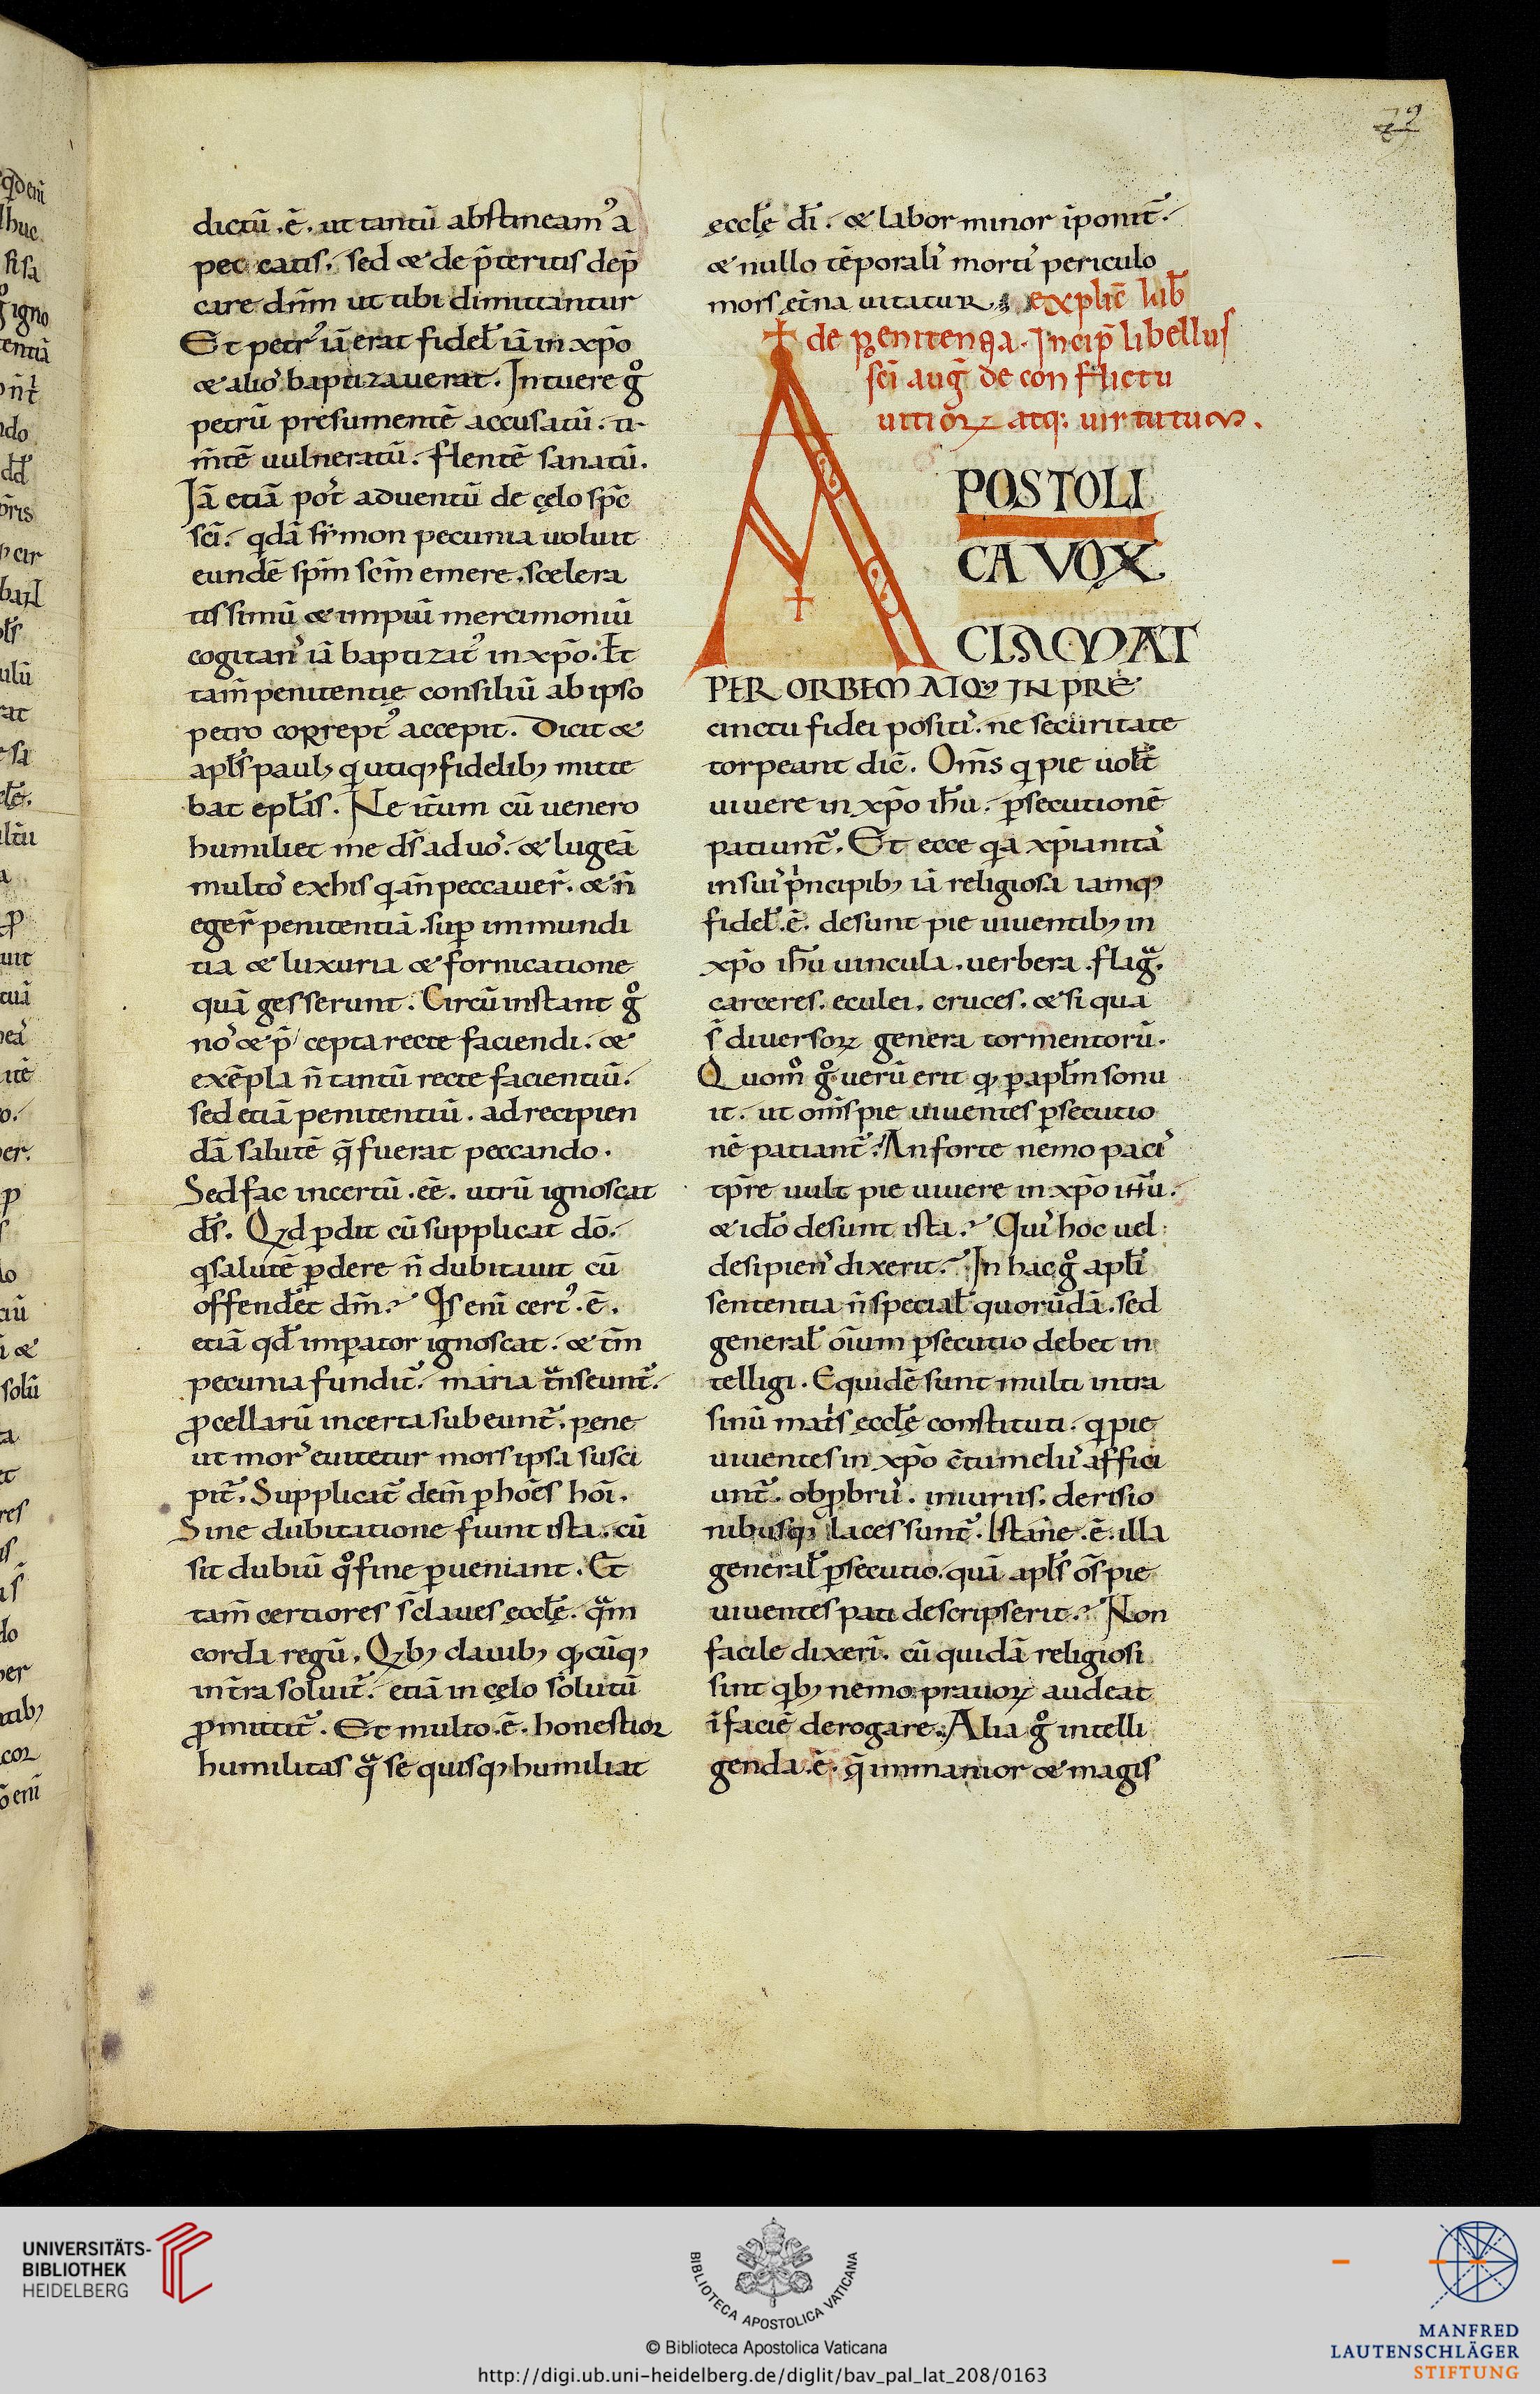 79
dictū .ē. ut tantū abstineam᾽ a
peccatis. sed & de p̄teritis dep̄
care dn̄m ut tibi dimittantur
Et petr᾽ iā erat fidel̄ iā in xp̄o
& alio᾽ baptizauerat. Intuere gͦ
petrū presumentē accusatū. ti
m̄tē uulneratū. flentē sanatū.
Iā etiā po᾽t aduentū de cęlo sp̄c
sc̄i. qdā s᾽rmon pecunia uoluit
eundē sp̄m sc̄m emere. scelera
tissimū & impiū mercimoniū
cogitan᾽ iā baptizat᾽ in xp̄o. Et
tam̄ penitentię consiliū ab ipso
petro corrept᾽ accepit. Dicit &
apl̄s paul; q utiq; fidelib; mitte
bat epl̄as. Ne it̄um cū uenero
humiliet me ds̄ ad uo᾽. & lugeā
multo᾽ ex his qi an̄ peccauer̄. & n̄
eger̄ penitentiā. sup immundi
tia & luxuria & fornicatione
quā gesserunt. Circūinstant gͦ
no᾽ & p̄cepta recte faciendi. &
exēpla n̄ tantū recte facientiū.
sed etiā penitentiū. ad recipien
dā salutē q̄ fuerat peccando.
Sed fac incertū .ēē. utrū ignoscat
ds̄. Qid pdit cū supplicat dō.
qi salutē pdere n̄ dubitauit cū
offenderet dm̄? Qis eni cert᾽ .ē.
etiā qd̄ imperator ignoscat. & tm̄
pecunia fundit᾽. maria tᵃnseunt᾽.
pcellarū incerta subeunt᾽. pene
ut mor᾽ euitetur mors ipsa susci
pit᾽. Supplicat᾽ dem̄ p hoēs hoi.
Sine dubitatione fiunt ista. cū
sit dubiū qͦ fine pueniant. Et
tam̄ certiores s̄ claues ęccl̄ę. qᵃm
corda regū. Qib; clauib; qcūq;
in t̄ra soluit᾽. etiā in cęlo solutū
pmittit᾽. Et multo .ē. honestior
humilitas qᵃ se quisq; humiliat
ęccl̄ę di. & labor minor īponit᾽.
& nullo tēporali᾽ morti᾽ periculo
mors et̄na uitatur. explic̄ lib̄
de penitentia. Incip̄ libellus
sc̄i auḡ de conflictu
uitioꝝ atq: uirtutum.
APOSTOLI
CA VOX
CLAMAT
PER ORBEM ATQ; IN PRE
cinctu fidei positi᾽. ne securitate
torpeant dic̄. Om̄s qi pie uolt
uiuere in xp̄o ih̄u. psecutionē
patiunt᾽. Et ecce qa xp̄ianita᾽
in sui᾽ pincipib; iā religiosa iamq;
fidel̄ .ē. desunt pie uiuentib; in
xp̄o ih̄u uincula. uerbera. flagᵃ.
carceres. eculei. cruces. & si qua
s̄ diuersoꝝ genera tormentorū.
Quomͦ gͦ uerū erit q p apl̄m sonu
it. ut om̄s pie uiuentes psecutio
nē patiant᾽? An forte nemo paci᾽
tp̄re uult pie uiuere in xp̄o ih̄u.
& idͦo desunt ista? Qui᾽ hoc uel
desipien᾽ dixerit? In hac gͦ apl̄i
sententia n̄ special̄ quorūdā. sed
general̄ oīum psecutio debet in
telligi. Equidē sunt multi intra
sinū mat᾽s ęccl̄ę constituti. qi pie
uiuentes in xp̄o c̄tumelii᾽ affici
unt᾽. obprobrii᾽. iniuriis. derisio
nibusq; lacessunt᾽. Istan̄e .ē. illa
general̄ psecutio. quā apl̄s os̄ pie
uiuentes pati descripserit? Non
facile dixeri᾽. cū quidā religiosi
sint qib; nemo prauoꝝ audeat
ī faciē derogare. Alia gͦ intelli
genda .ē. q̄ immanior & magis
UNIVERSITÄTS-
BIBLIOTHEK
HEIDELBERG
BIBLIOTECA APOSTOLICA VATICANA
© Biblioteca Apostolica Vaticana
http://digi.ub.uni-heidelberg.de/diglit/bav_pal_lat_208/0163
MANFRED
LAUTENSCHLÄGER
STIFTUNG